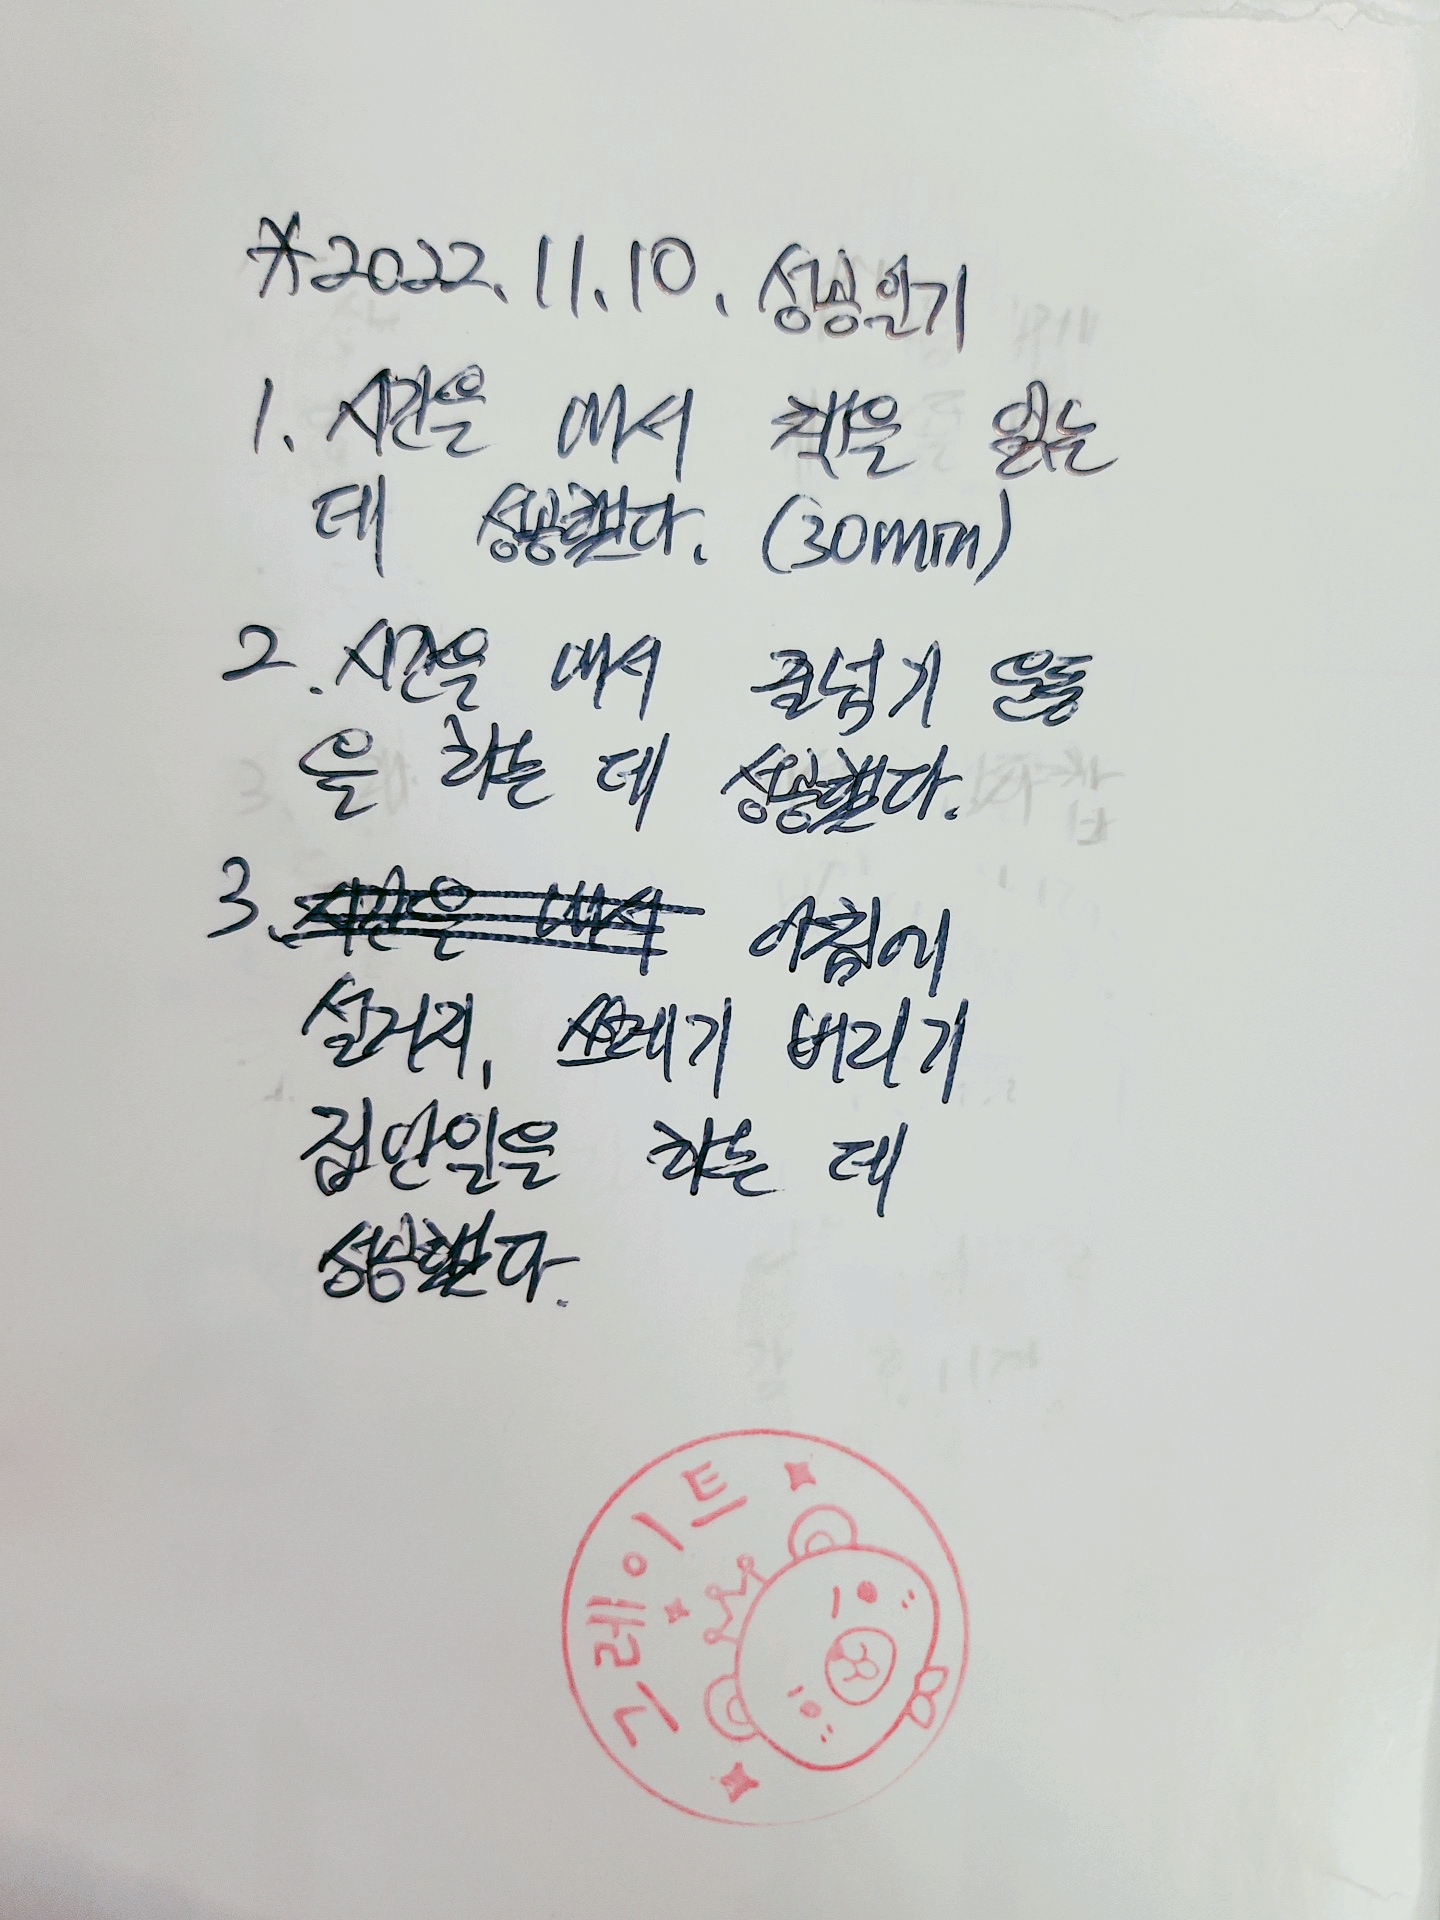 *2022.11.10. 성공일기
1. 시간을 내서 책을 읽는
데 성공했다. (30min)
2. 시간을 내서 줄넘기 운동
을 하는 데 성공했다.
3. 시간을 내서 아침에
설거지, 쓰레기 버리기
집안일을 하는 데
성공했다.
그레이트